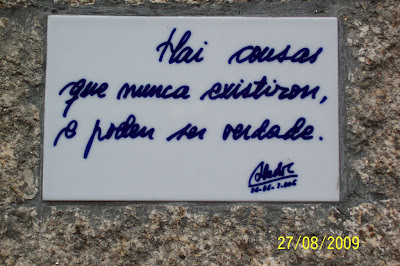 Hai cousas
que nunca existiron,
e poden ser verdade.
27/08/2009